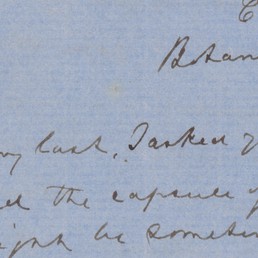 Botan
my last, I asked y
the capsule
ight be someti